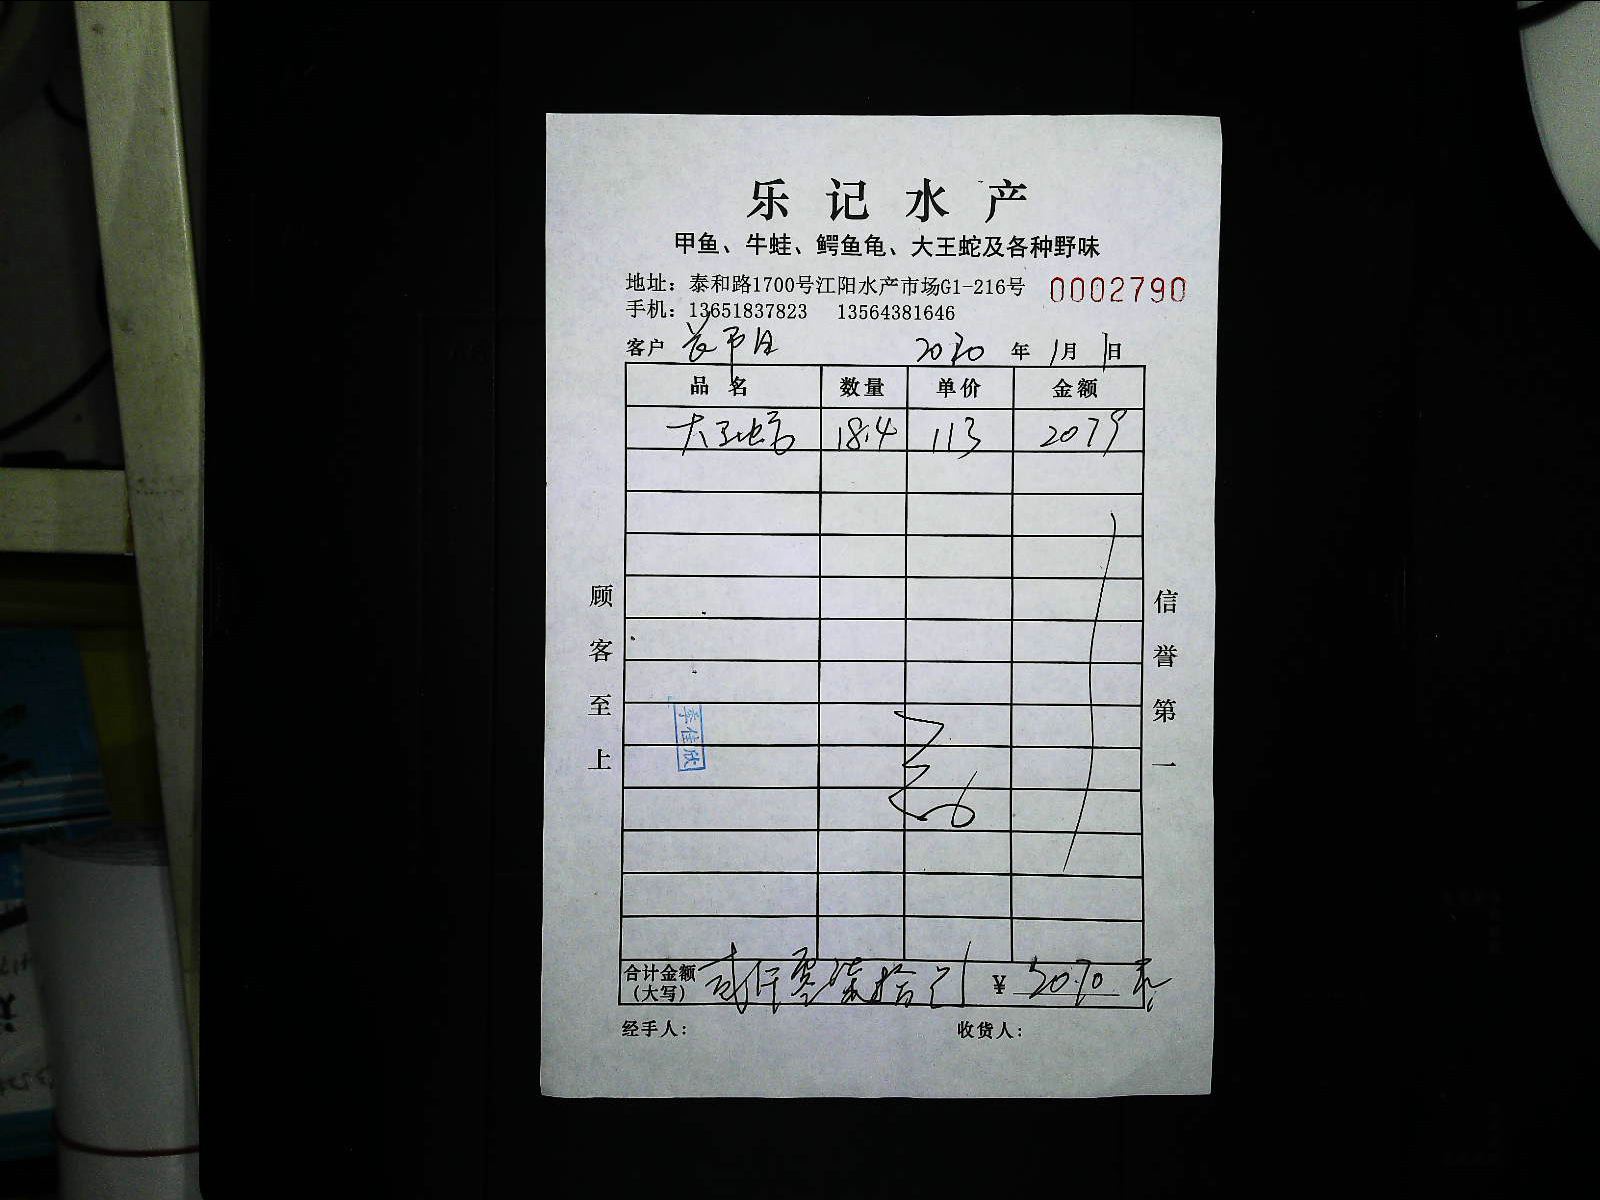 乐记水产
甲鱼、牛蛙、鳄鱼龟、大王蛇及各种野味
地址：泰和路1700号江阳水产市场G1-216号 0002790
手机：13651837823 13564381646
客户 2020 年 1月 1日
品名 数量 单价 金额
大王蛇 18.4 113 2079
顾客至上
信誉第一
季佳欣
合计金额(大写) 贰仟零柒拾 ¥ 2070 元
经手人： 收货人：